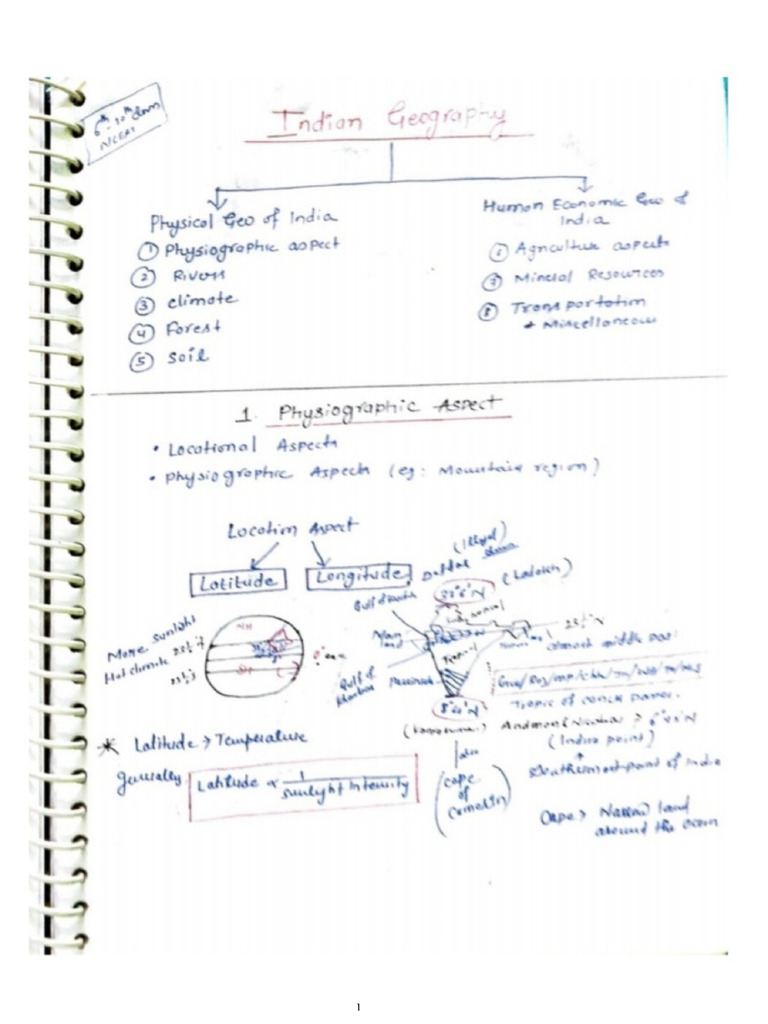 6th-10th class
NCERT
Indian Geography
Physical Geo of India
① Physiographic aspect
② Rivers
③ Climate
④ Forest
⑤ Soil
Human Economic Geo of
India
① Agriculture aspects
② Mineral Resources
③ Transportation
+ Miscellaneous
1. Physiographic Aspect
• Locational Aspects
• Physiographic Aspects (eg: Mountain region)
Location Aspect
Latitude
Longitude
(Ladakh)
NH
More sunlight
Hot climate 23½°
23½°
SH
23½°N
almost middle part
Gulf of
Peninsula
Tropic of cancer passes.
8°4'N
Andman & Nicobar > 6°45'N
(Indira point)
Southernmost point of India
(cape
of
comorin)
Cape > Narrow land
around the ocean
* Latitude > Temperature
generally
Latitude ∝ 1
sunlight Intensity
1